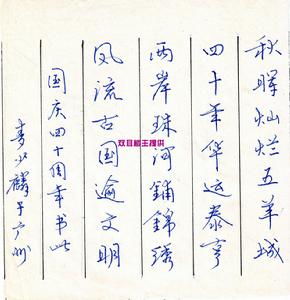 秋晖灿烂五羊城
四十年华运泰亨
两岸珠河铺錦綉
风流古国遍文明
国庆四十周年书此
麦少麟于广州
双目樵主提供